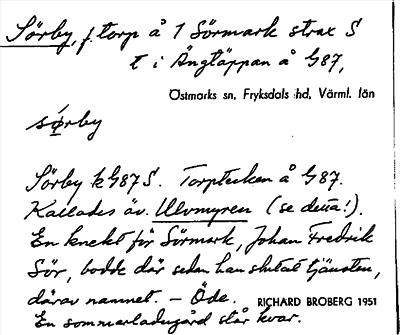 Sörby, f. torp å 1 Sörmark strax S
t i Ängtäppan å G87,
Östmarks sn, Fryksdals hd, Värml. län
sörby
Sörby k G87 S. Torptecken å G87.
Kallades äv. Ulvmyren (se detta!).
En knekt för Sörmark, Johan Fredrik
Sör, bodde där sedan han slutat tjänsten,
därav namnet. – Öde. RICHARD BROBERG 1951
En sommarladugård står kvar.